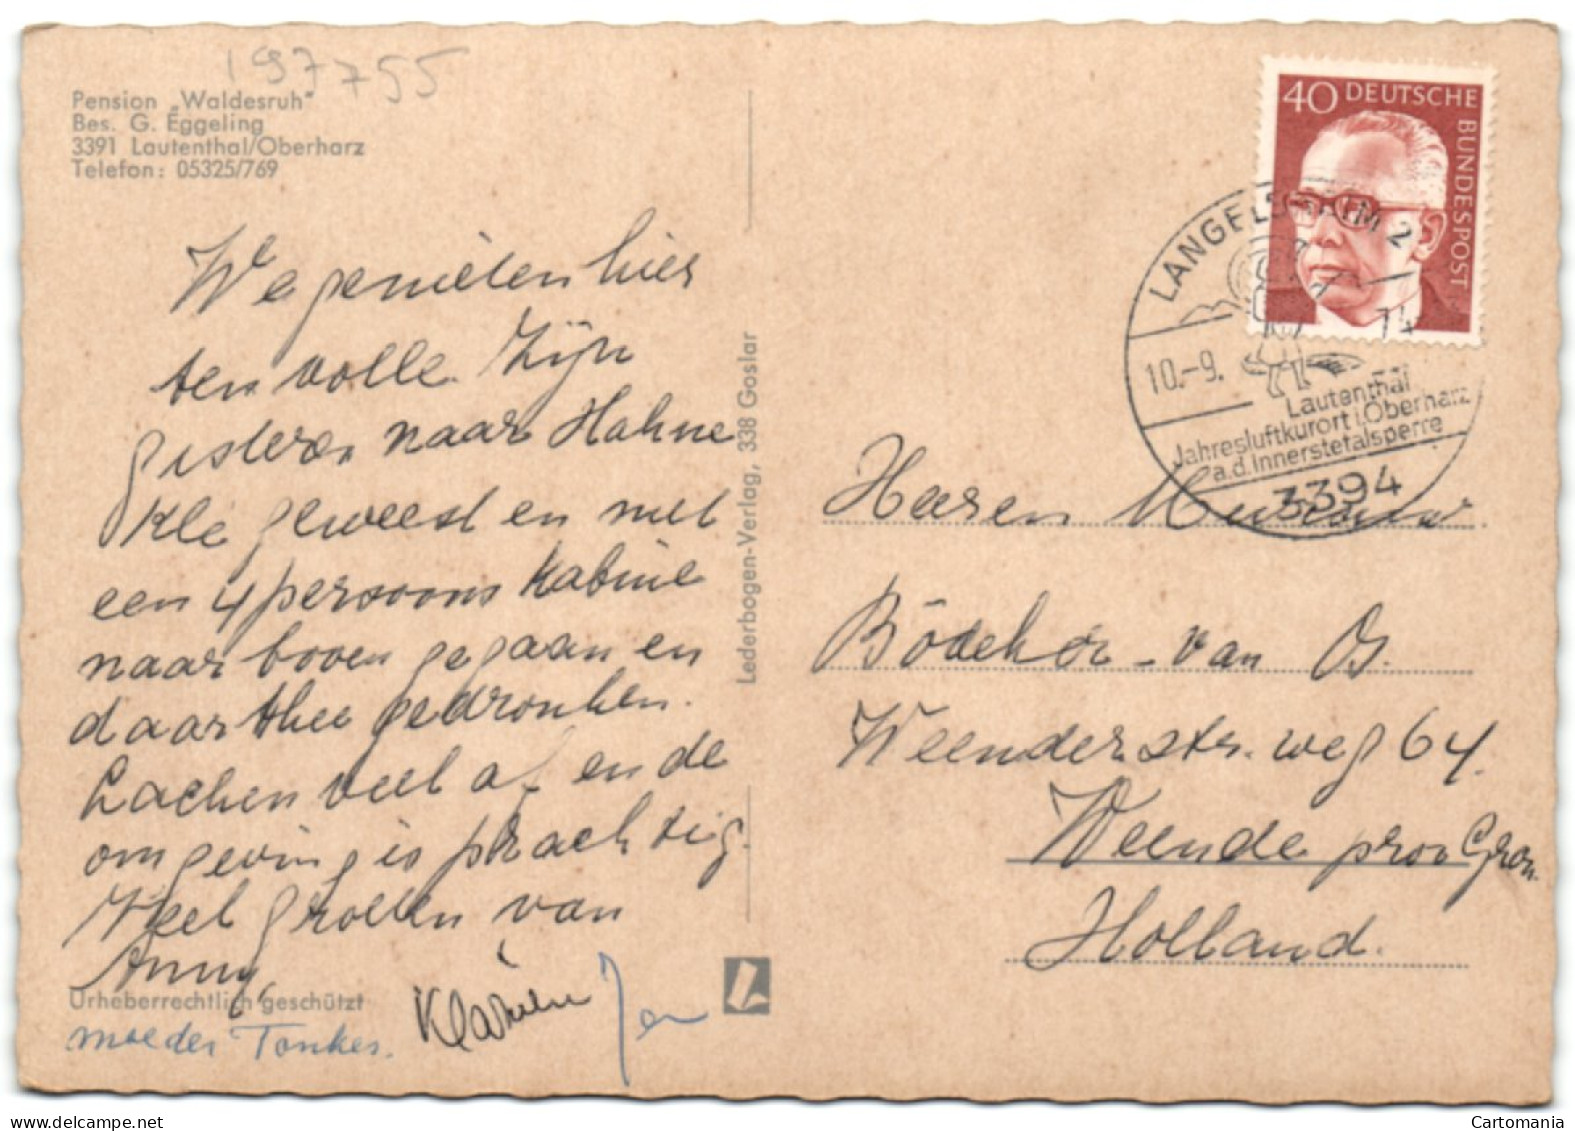 197755
Pension „Waldesruh"
Bes. G. Eggeling
3391 Lautenthal/Oberharz
Telefon: 05325/769
We genieten hier
ten volle. Zijn
gisteren naar Hahne
Kle geweest en met
een 4 persoons kabine
naar boven gegaan en
daar thee gedronken.
Lachen veel af en de
omgeving is prachtig.
Veel groeten van
Anny,
Urheberrechtlich geschützt
moeder Tonkes.
Jen
Lederbogen-Verlag, 338 Goslar
40 DEUTSCHE
BUNDESPOST
LANGELSHEIM 2
10.-9. 74
Lautenthal
Jahresluftkurort i. Oberharz
a.d. Innerstetalsperre
3394
Heeren
Bödeker - van Os.
Weenderstr. weg 64.
Weende prov Gron.
Holland.
Cartomania